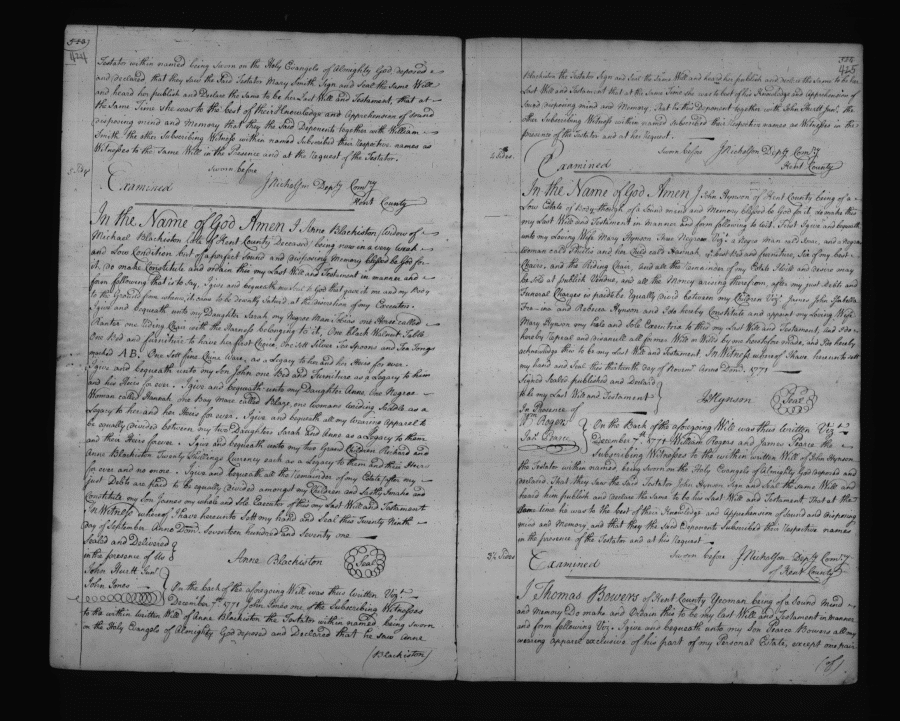 424
Testator within named being Sworn on the Holy Evangels of Almighty God deposed
and declared that they saw the Said Testator Mary Smith Sign and Seal the Same Will
and heard her publish and Declare the Same to be her Last Will and Testament, that at
the Same Time She was to the best of their Knowledge and Apprehension of Sound
disposing mind and Memory that they the Said Deponents together with William
Smith the other Subscribing Witness within named Subscribed their respective names as
Witnesses to the Same Will in the Presence and at the Request of the Testator.
Sworn before
Examined J Nicholson Depty Comry
Kent County
In the Name of God Amen I Anne Blackiston, Widow of
Michael Blackiston late of Kent County Deceased being now in a very Weak
and Low Condition but of a perfect Sound and disposing Memory blessed be God for
it, Do make Constitute and ordain this my Last Will and Testament in manner and
form following that is to say, I give and bequeath my Soul to God that gave it me and my Body
to the Ground from whence it came to be decently buried at the direction of my Executor.
I give and bequeath unto my Daughter Sarah my Negroe Man one Horse called
Ranter one Riding Chair with the Harness belonging to it, One black Walnut Table
One Bed and furniture to have her first Choice, One Sett Silver Tea Spoons and Tea Tongs
marked AB, One Sett fine China Ware, as a Legacy to her and her Heirs for ever.
I give and bequeath unto my Son John one Bed and Furniture as a Legacy to him
and his Heirs for ever. I give and bequeath unto my Daughter Anne one Negroe
Woman called Hannah, one Bay Mare called Blaze, one womans Riding Saddle, as a
Legacy to her and her Heirs for ever. I give and bequeath all my Wearing Apparel to
be equally divided between my two Daughters Sarah and Anne as a Legacy to them
and their Heirs forever. I give and bequeath unto my two Grand Children Richard and
Anne Blackiston Twenty Shillings Currency each as a Legacy to them and their Heirs
for ever and no more. I give and bequeath all the Remainder of my Estate after my
just Debts are paid to be equally Divided amongst my Children and Lastly I make and
Constitute my Son James my whole and Sole Executor of this my Last Will and Testament
In Witness whereof I have hereunto Sett my hand and Seal this Twenty Ninth
Day of September Anno Dom Seventeen hundred and Seventy one
Sealed and Delivered
in the presence of Us Anne Blackiston Seal
John Jones
On the back of the aforegoing Will was thus written Vizt
December 7th 1771 John Jones one of the Subscribing Witnesses
to the within written Will of Anne Blackiston the Testator within named being Sworn
on the Holy Evangels of Almighty God deposed and Declared that he saw Anne
(Blackiston)
425
Blackiston the Testator Sign and Seal the Same Will and heard her publish and declare the Same to be her
Last Will and Testament that at the Same Time She was to the best of his Knowledge and Apprehension of
Sound disposing mind and Memory, that he this Deponent together with John the
other Subscribing Witness within named Subscribed their respective names as Witnesses in the
presence of the Testator and at her Request.
Sworn before J Nicholson Depty Comry
4 Sides. Examined Kent County
In the Name of God Amen I John Hynson of Kent County being of a
Low Estate of Body though of a Sound mind and Memory blessed be God for it do make this
my Last Will and Testament in manner and form following to wit. First I give and bequeath
unto my Loving Wife Mary Hynson three Negroes Viz. a Negroe Man and a Negroe
Woman called Phillis and her Child called Hannah, a Bed and furniture, Six of my best
Chairs, and the Riding Chair, and all the remainder of my Estate I Will and desire may
be Sold at publick Vendue, and all the Money arising therefrom after my just debts and
Funeral Charges is paid to be Equally divided between my Children Viz. James John Isabella
and Rebecca Hynson and I do hereby Constitute and appoint my Loving Wife
Mary Hynson my Sole Executrix to this my Last Will and Testament, and I do
hereby repeal and disannull all former Will or Wills by me heretofore made, and I do hereby
acknowledge this to be my Last Will and Testament. In Witness whereof I have hereunto sett
my hand and Seal this thirteenth Day of Novemr Anno Domi 1771
Signed Sealed published and Declared
to be my Last Will and Testament Hynson Seal
In Presence of
Wm Rogers
Jas Pearce
On the Back of the aforegoing Will was thus Written Vizt
December 7th 1771 William Rogers and James Pearce the
Subscribing Witnesses to the within written Will of John Hynson
the Testator within named, being Sworn on the Holy Evangels of Almighty God deposed and
declared that they saw the Said Testator John Hynson Sign and Seal the Same Will and
heard him publish and declare the Same to be his Last Will and Testament, that at the
Same time he was to the best of their Knowledge and Apprehension of Sound and disposing
mind and Memory, and that they the Said Deponent Subscribed their respective names
in the presence of the Testator and at his Request
Sworn before J Nicholson Depty Comry
Examined of Kent County
I Thomas Bowers of Kent County Yeoman being of a Sound mind
and Memory Do make and Ordain this to be my Last Will and Testament in manner
and form following Viz. I give and bequeath unto my Son Pearce Bowers all my
wearing apparel exclusive of his part of my Personal Estate, except one pair
(of)